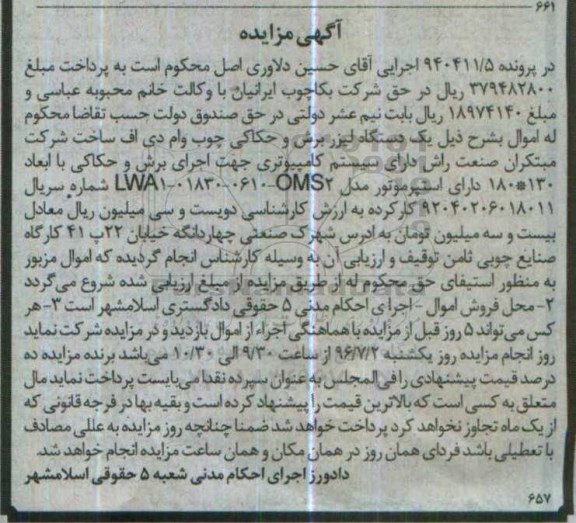 ۶۶۱
آگهی مزایده
در پرونده ۹۴۰۴۱۱/۵ اجرایی آقای حسین دلاوری اصل محکوم است به پرداخت مبلغ
۳۷۹۴۸۲۸۰۰ ریال در حق شرکت یکاچوب ایرانیان با وکالت خانم محبوبه عباسی و
مبلغ ۱۸۹۷۴۱۴۰ ریال بابت نیم عشر دولتی در حق صندوق دولت حسب تقاضا محکوم
له اموال بشرح ذیل یک دستگاه لیزر برش و حکاکی چوب وام دی اف ساخت شرکت
مبتکران صنعت راش دارای سیستم کامپیوتری جهت اجرای برش و حکاکی با ابعاد
۱۳۰*۱۸۰ دارای استپرموتور مدل LWA۱-۰۱۸۳۰-۰۶۱۰-OMS۲ شماره سریال
۹۲۰۴۰۲۰۶۰۱۸۰۱۱ کارکرده به ارزش کارشناسی دویست و سی میلیون ریال معادل
بیست و سه میلیون تومان به ادرس شهرک صنعتی چهاردانگه خیابان ۲۲پ ۴۱ کارگاه
صنایع چوبی ثامن توقیف و ارزیابی آن به وسیله کارشناس انجام گردیده که اموال مزبور
به منظور استیفای حق محکوم له از طریق مزایده از مبلغ ارزیابی شده شروع می گردد
۲- محل فروش اموال - اجرای احکام مدنی ۵ حقوقی دادگستری اسلامشهر است ۳- هر
کس می تواند ۵ روز قبل از مزایده با هماهنگی اجراء از اموال بازدید و در مزایده شرکت نماید
روز انجام مزایده روز یکشنبه ۹۶/۷/۲ از ساعت ۹/۳۰ الی ۱۰/۳۰ می باشد برنده مزایده ده
درصد قیمت پیشنهادی را فی المجلس به عنوان سپرده نقدا می بایست پرداخت نماید مال
متعلق به کسی است که بالاترین قیمت را پیشنهاد کرده است و بقیه بها در فرجه قانونی که
از یک ماه تجاوز نخواهد کرد پرداخت خواهد شد ضمنا چنانچه روز مزایده به عللی مصادف
با تعطیلی باشد فردای همان روز در همان مکان و همان ساعت مزایده انجام خواهد شد.
دادورز اجرای احکام مدنی شعبه ۵ حقوقی اسلامشهر
۶۵۷